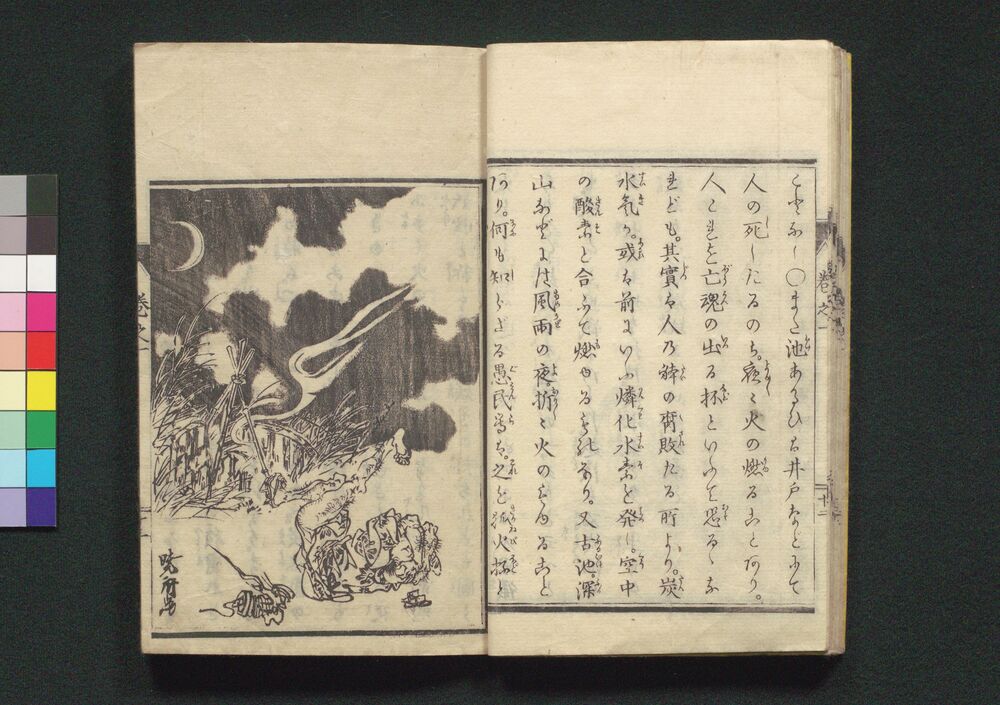 こなし〇また池あるひは井戸などにて
人の死したるのち。夜々火の燃ることあり。
人これを亡魂の出る抔といふて恐るゝな
れども。其實は人乃骸の腐敗たる所より。炭
水気。或は前にいふ燐化水素を発り。空中
の酸素と合ふて燃ゆるものなり。又古池。深
山などには風雨の夜折々火のもゆること
あり。何も知らざる愚民等は。之を狐火抔と
巻之一
十二
巻之一
暁斎画